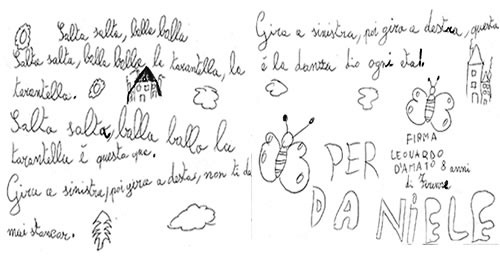 Salta salta, balla balla
Salta salta, balla balla la tarantella, la
tarantella.
Salta salta, balla balla la
tarantella è questa qua.
Gira a sinistra, poi gira a destra, non ti da
mai stancar.
Gira a sinistra, poi gira a destra, questa
è la danza di ogni età!
FIRMA
LEOUARDO
D'AMATO 8 anni
di Firenze
PER
DANIELE